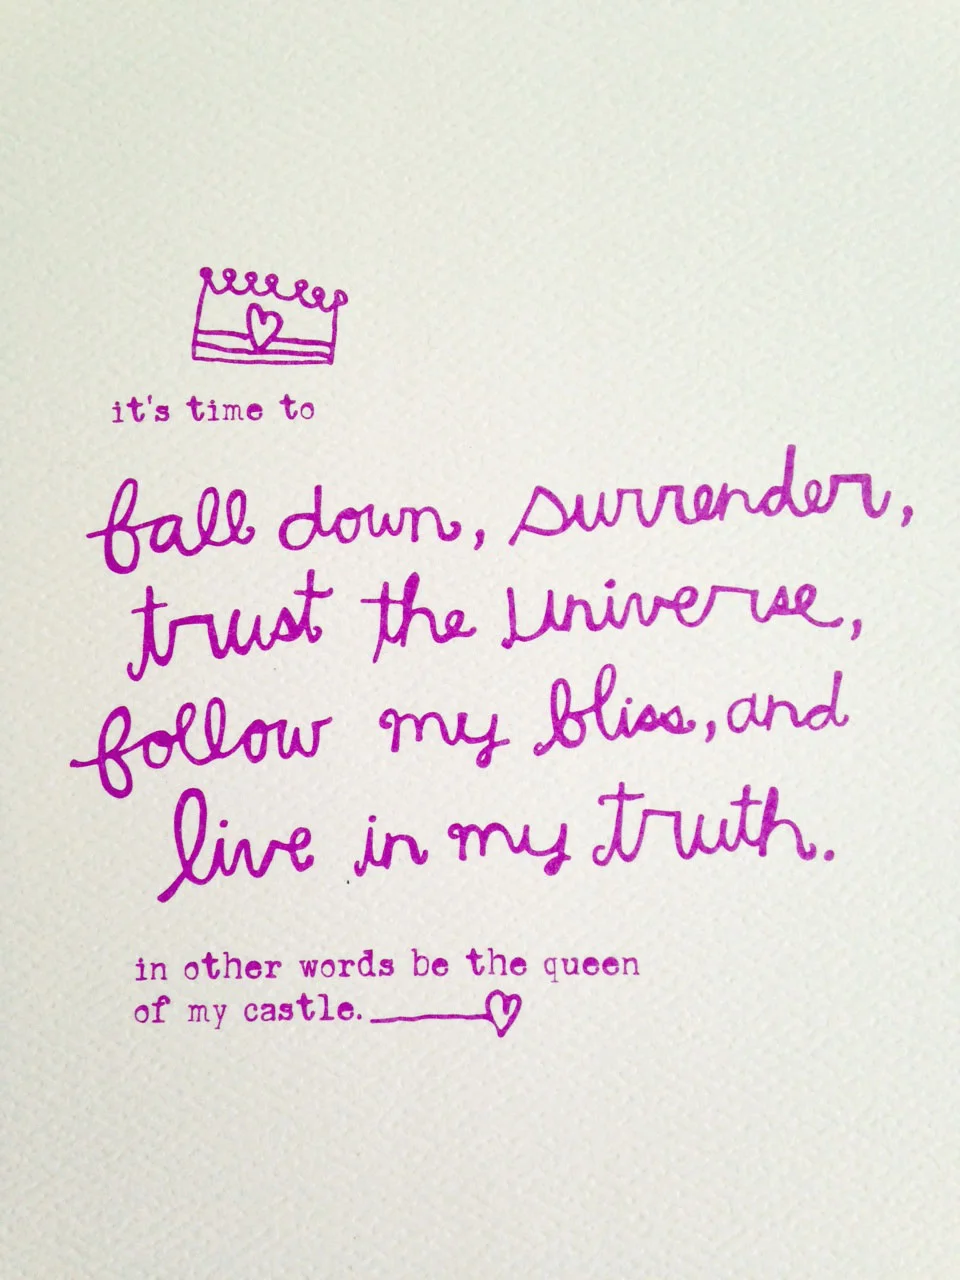 it's time to
fall down, surrender,
trust the Universe,
follow my bliss, and
live in my truth.
in other words be the queen
of my castle.